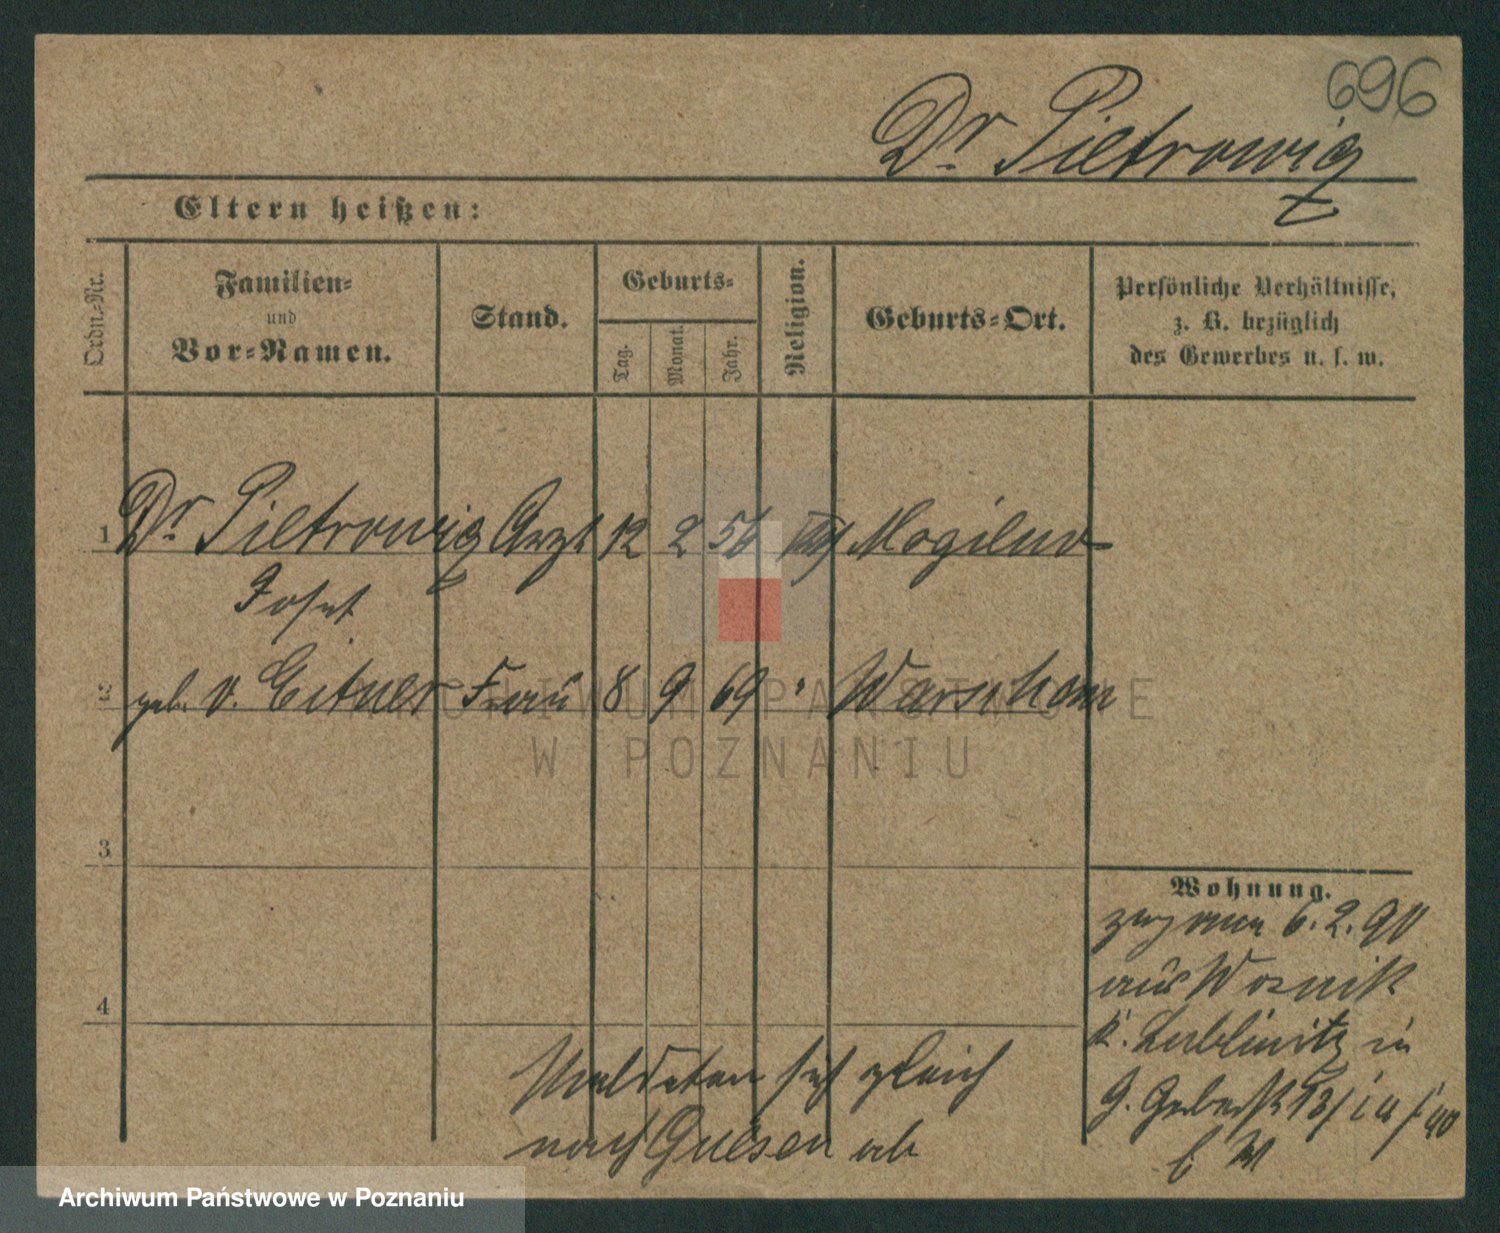 696
Dr. Pietrowicz
Eltern heißen:
Ordn.-Nr.
Familien-
und
Vor-Namen.
Stand.
Geburts-
Tag.
Monat.
Jahr.
Religion.
Geburts-Ort.
Persönliche Verhältnisse,
z. B. bezüglich
des Gewerbes u. s. w.
1 Dr. Pietrowicz Arzt 12 2 56 Mogilno
Josef
2 geb. v. Eitner Frau 8 9 69 " Warschau
3
Wohnung.
zug von 6.2.90
aus Wosnik
K. Lublinitz in
4
Meldeten sich gleich
nach Gnesen ab
ARCHIWUM PAŃSTWOWE
W POZNANIU
Archiwum Państwowe w Poznaniu